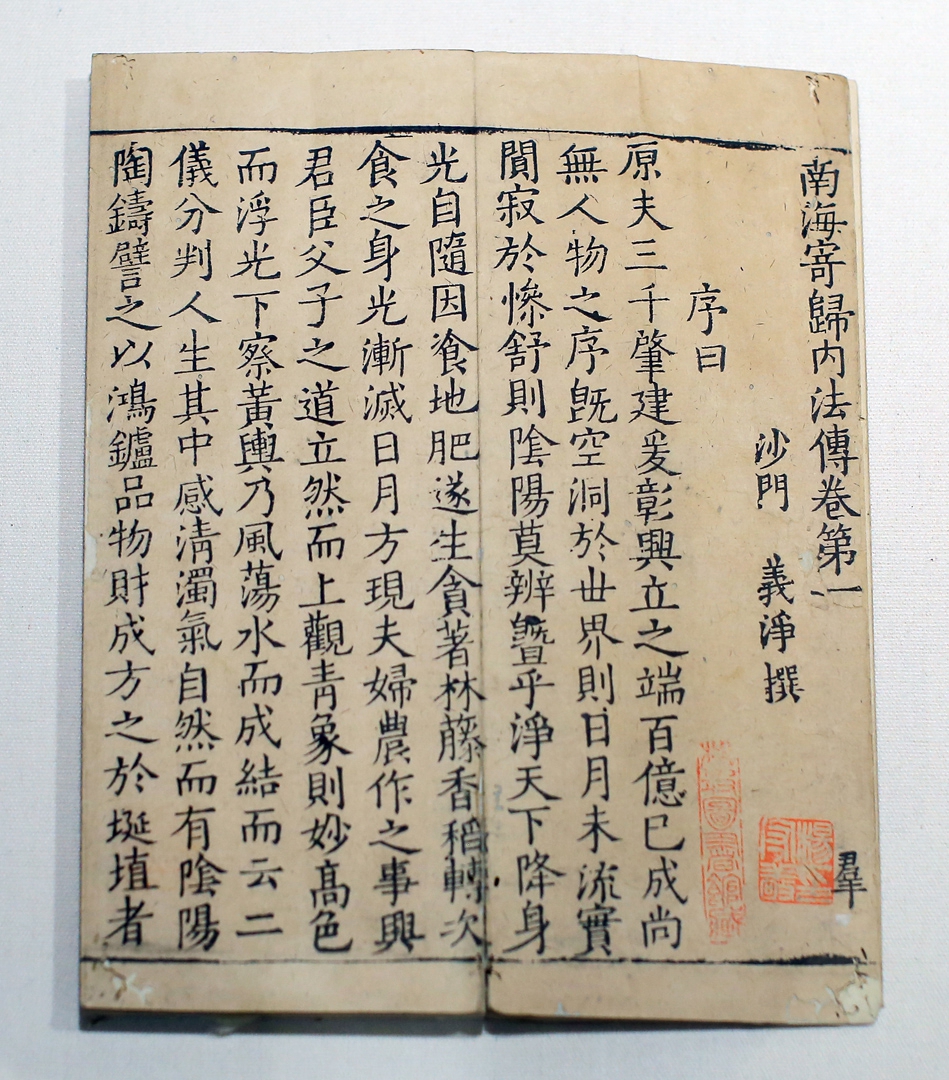 南海寄歸内法傳卷第一
羣
沙門　義淨撰
序曰
原夫三千肇建爰彰興立之端百億已成尚
無人物之序既空洞於世界則日月未流實
閴寂於慘舒則陰陽莫辨曁乎淨天下降身
光自隨因飡地肥遂生貪著林藤香稻轉次
食之身光漸滅日月方現夫婦農作之事興
君臣父子之道立然而上觀青象則妙高色
而浮光下察黃輿乃風蕩水而成結而云二
儀分判人生其中感清濁氣自然而有陰陽
陶鑄譬之以鴻鑪品物財成方之於埏埴者